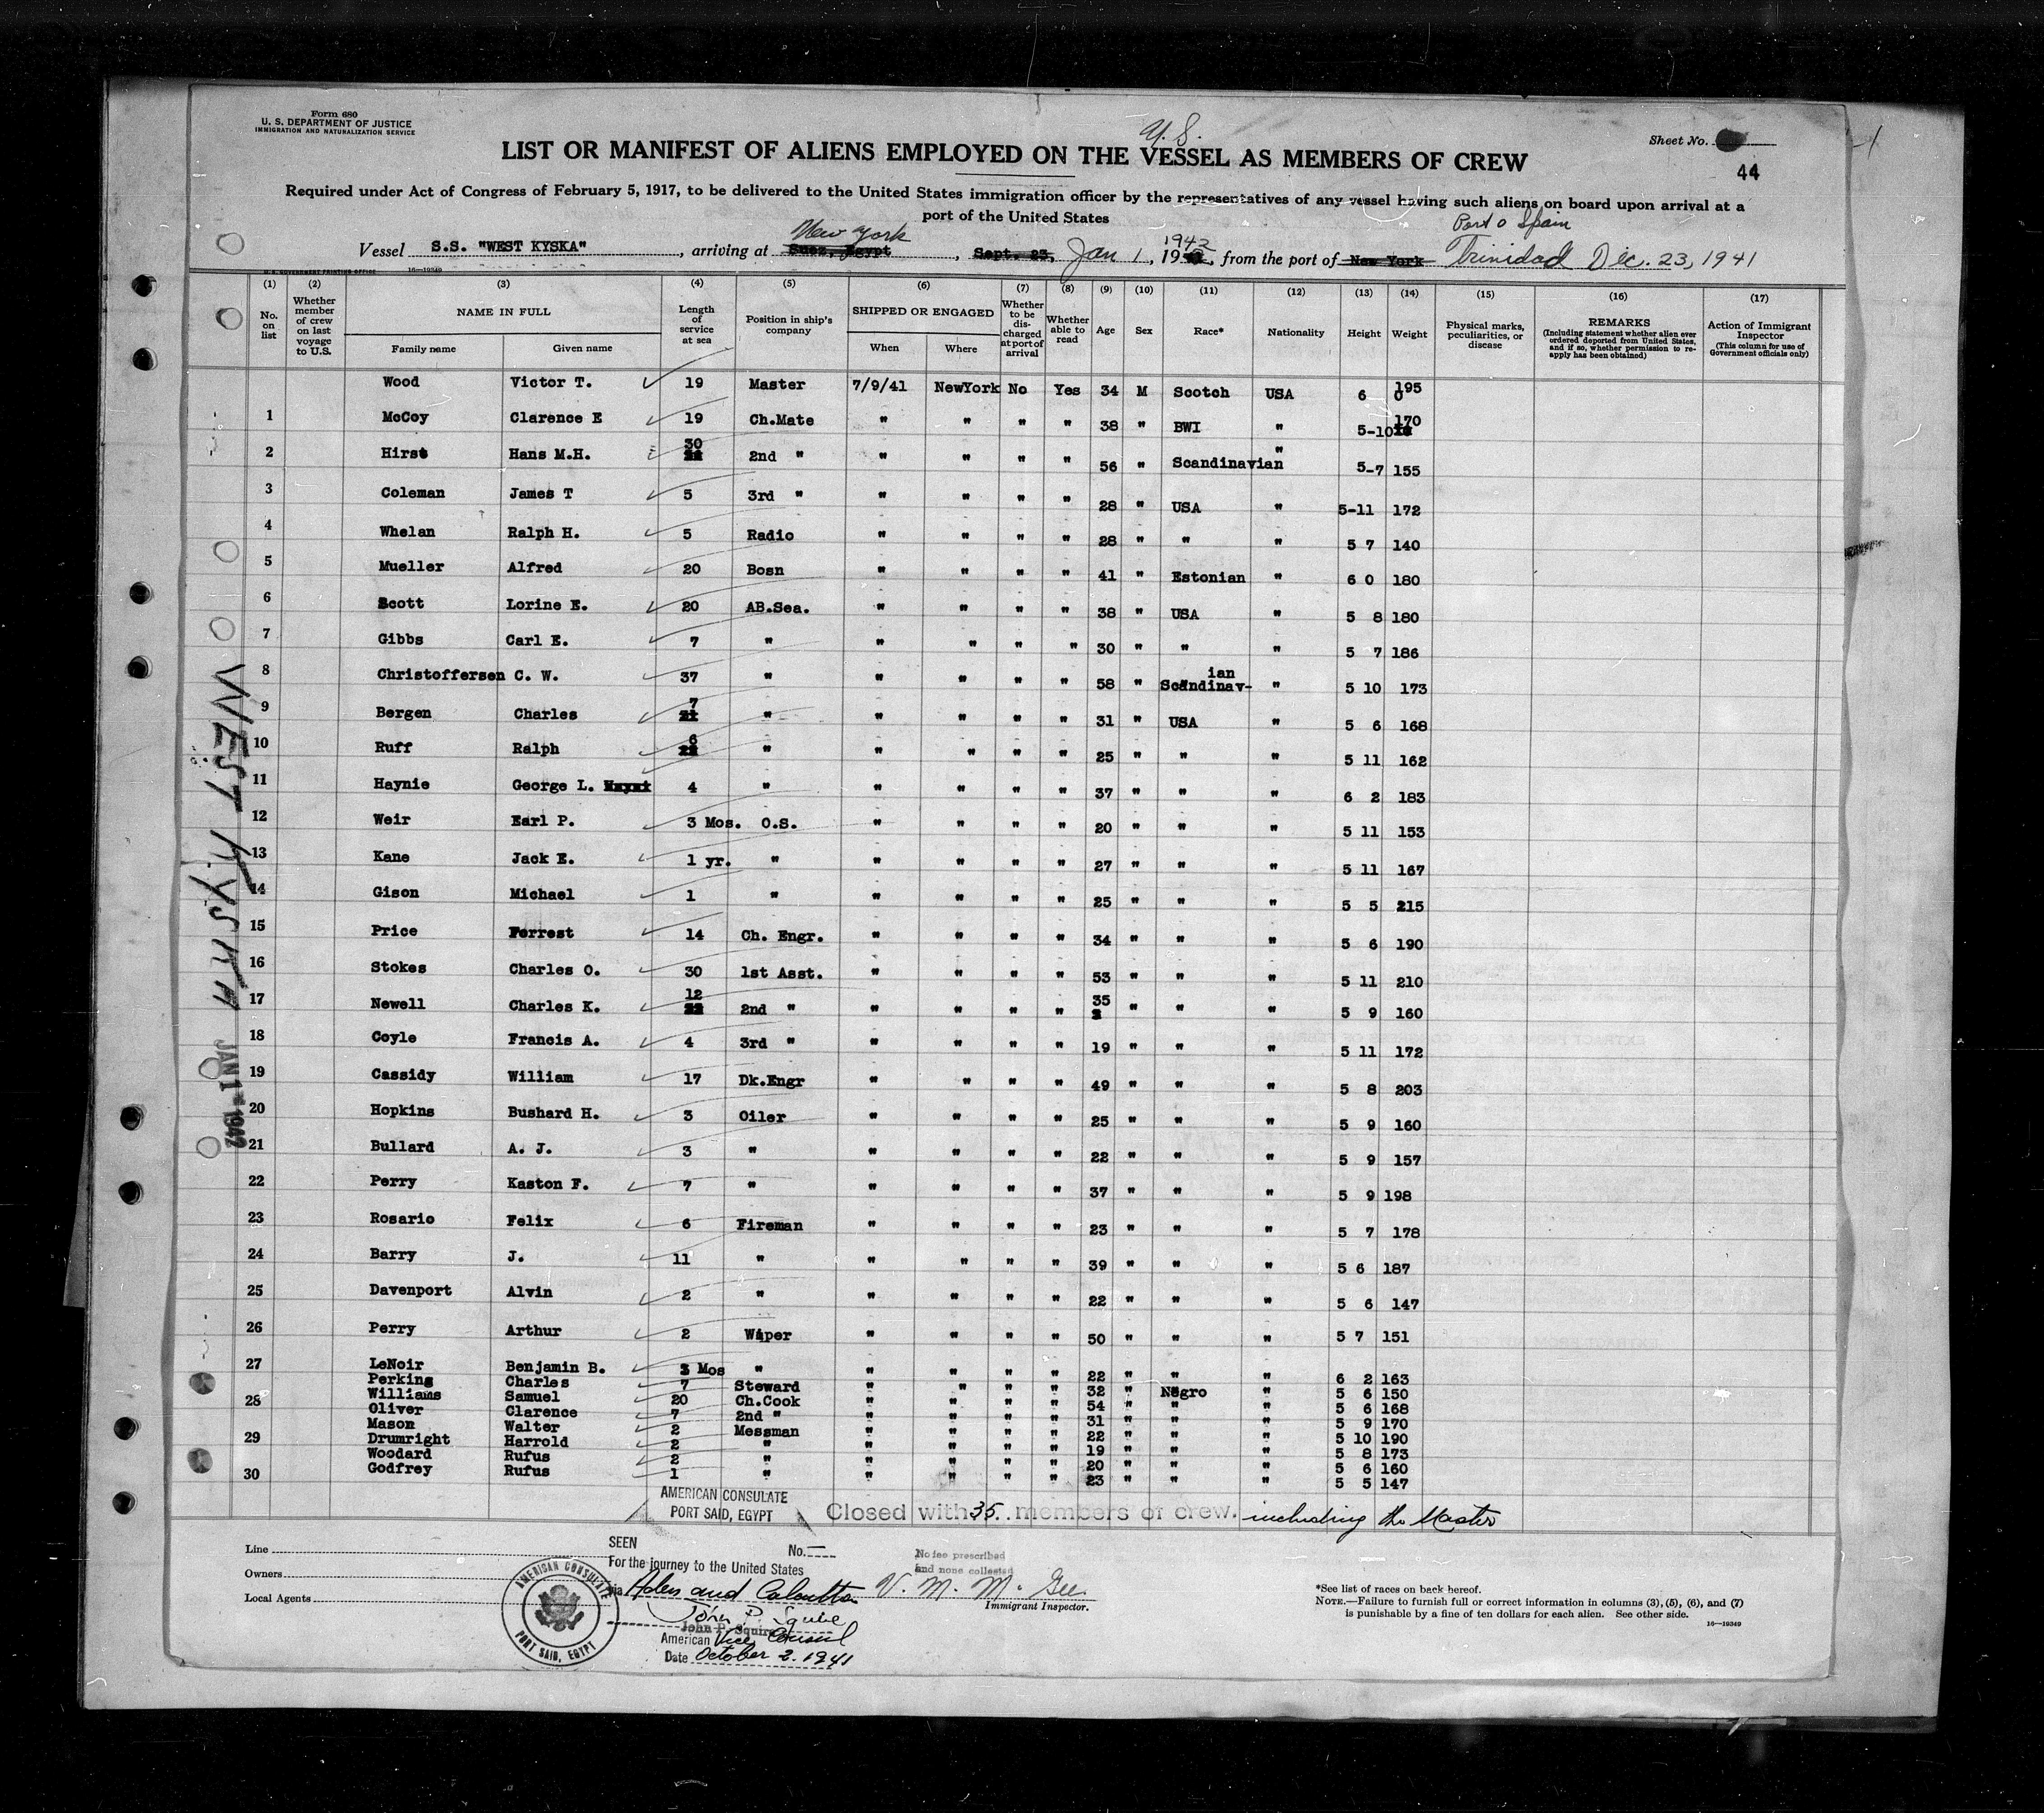 Form 680
U. S. DEPARTMENT OF JUSTICE
IMMIGRATION AND NATURALIZATION SERVICE
U. S.
Sheet No.
44
LIST OR MANIFEST OF ALIENS EMPLOYED ON THE VESSEL AS MEMBERS OF CREW
Required under Act of Congress of February 5, 1917, to be delivered to the United States immigration officer by the representatives of any vessel having such aliens on board upon arrival at a
port of the United States
New York 1942 Port o Spain
Vessel S.S. "WEST KYSKA", arriving at Suez, Egypt, Sept. 23, Jan 1, 19, from the port of New York Trinidad Dec. 23, 1941
U. S. GOVERNMENT PRINTING OFFICE 16—19349
(1) (2) (3) (4) (5) (6) (7) (8) (9) (10) (11) (12) (13) (14) (15) (16) (17)
No. on list Whether member of crew on last voyage to U.S. NAME IN FULL Family name Given name Length of service at sea Position in ship's company SHIPPED OR ENGAGED When Where Whether to be discharged at port of arrival Whether able to read Age Sex Race* Nationality Height Weight Physical marks, peculiarities, or disease REMARKS (Including statement whether alien ever ordered deported from United States, and if so, whether permission to reapply has been obtained) Action of Immigrant Inspector (This column for use of Government officials only)
Wood Victor T. 19 Master 7/9/41 NewYork No Yes 34 M Scotch USA 6 0 195
1 McCoy Clarence E 19 Ch.Mate " " " " 38 " BWI " 5-10 170
2 Hirst Hans M.H. 30 2nd " " " " " 56 " Scandinavian " 5-7 155
3 Coleman James T 5 3rd " " " " " 28 " USA " 5-11 172
4 Whelan Ralph H. 5 Radio " " " " 28 " " " 5 7 140
5 Mueller Alfred 20 Bosn " " " " 41 " Estonian " 6 0 180
6 Scott Lorine E. 20 AB.Sea. " " " " 38 " USA " 5 8 180
7 Gibbs Carl E. 7 " " " " " 30 " " " 5 7 186
8 Christoffersen C. W. 37 " " " " " 58 " Scandinav-ian " 5 10 173
9 Bergen Charles 7 " " " " " 31 " USA " 5 6 168
10 Ruff Ralph 6 " " " " " 25 " " " 5 11 162
11 Haynie George L. 4 " " " " " 37 " " " 6 2 183
12 Weir Earl P. 3 Mos. O.S. " " " " 20 " " " 5 11 153
13 Kane Jack E. 1 yr. " " " " " 27 " " " 5 11 167
14 Gison Michael 1 " " " " " 25 " " " 5 5 215
15 Price Forrest 14 Ch. Engr. " " " " 34 " " " 5 6 190
16 Stokes Charles O. 30 1st Asst. " " " " 53 " " " 5 11 210
17 Newell Charles K. 12 2nd " " " " " 35 " " " 5 9 160
18 Coyle Francis A. 4 3rd " " " " " 19 " " " 5 11 172
19 Cassidy William 17 Dk.Engr " " " " 49 " " " 5 8 203
20 Hopkins Bushard H. 3 Oiler " " " " 25 " " " 5 9 160
21 Bullard A. J. 3 " " " " " 22 " " " 5 9 157
22 Perry Kaston F. 7 " " " " " 37 " " " 5 9 198
23 Rosario Felix 6 Fireman " " " " 23 " " " 5 7 178
24 Barry J. 11 " " " " " 39 " " " 5 6 187
25 Davenport Alvin 2 " " " " " 22 " " " 5 6 147
26 Perry Arthur 2 Wiper " " " " 50 " " " 5 7 151
27 LeNoir Benjamin B. 3 Mos " " " " " 22 " " " 6 2 163
Perking Charles 7 Steward " " " " 32 " Negro " 5 6 150
28 Williams Samuel 20 Ch.Cook " " " " 54 " " " 5 6 168
Oliver Clarence 7 2nd " " " " " 31 " " " 5 9 170
Mason Walter 2 Messman " " " " 22 " " " 5 10 190
29 Drumright Harrold 2 " " " " " 19 " " " 5 8 173
Woodard Rufus 2 " " " " " 20 " " " 5 6 160
30 Godfrey Rufus 1 " " " " " 23 " " " 5 5 147
WEST KYSKA JAN 1 1942
AMERICAN CONSULATE
PORT SAID, EGYPT
Closed with 35 members of crew. including the Master
Line
Owners
Local Agents
AMERICAN CONSULATE PORT SAID, EGYPT
SEEN No. —
For the journey to the United States
via Aden and Calcutta
John P. Squire
John P. Squire
American Vice Consul
Date October 2. 1941
No fee prescribed
and none collected
V. M. M. Gee
Immigrant Inspector.
*See list of races on back hereof.
NOTE.—Failure to furnish full or correct information in columns (3), (5), (6), and (7)
is punishable by a fine of ten dollars for each alien. See other side.
16—19349